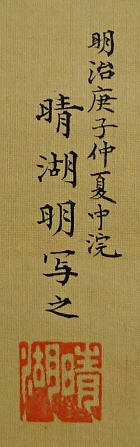 明治庚子仲夏中浣
晴湖明写之
晴湖